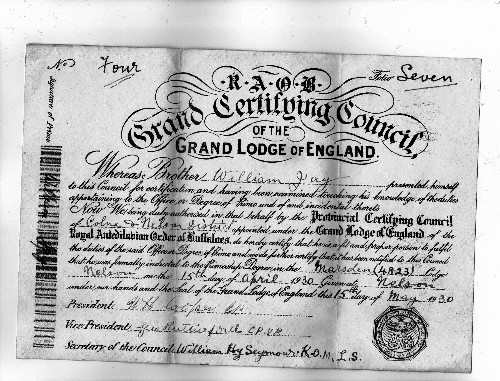 No Four
Folio Seven
R·A·O·B·
Grand Certifying Council,
OF THE
GRAND LODGE OF ENGLAND.
Whereas Brother William Jay presented himself
to this Council for certification and having been examined touching his knowledge of the duties
appertaining to the Office or Degree of Primo and of and incidental thereto
Now We being duly authorized in that behalf by the Provincial Certifying Council
Colne & Nelson District appointed under the Grand Lodge of England of the
Royal Antediluvian Order of Buffaloes, do hereby certify that he is a fit and proper person to fulfil
the duties of the said Office or Degree of Primo and we do further certify that it has been notified to this Council
that he was formally inducted to the Degree in the Marsden (4823) Lodge
Nelson on the 15th day of April 1930 Given at Nelson
under our hands and the Seal of the Grand Lodge of England this 15 day of May 1930
President
Vice President
Secretary of the Council William Hy Seymour K.O.M. L.S.
Signature of Primo